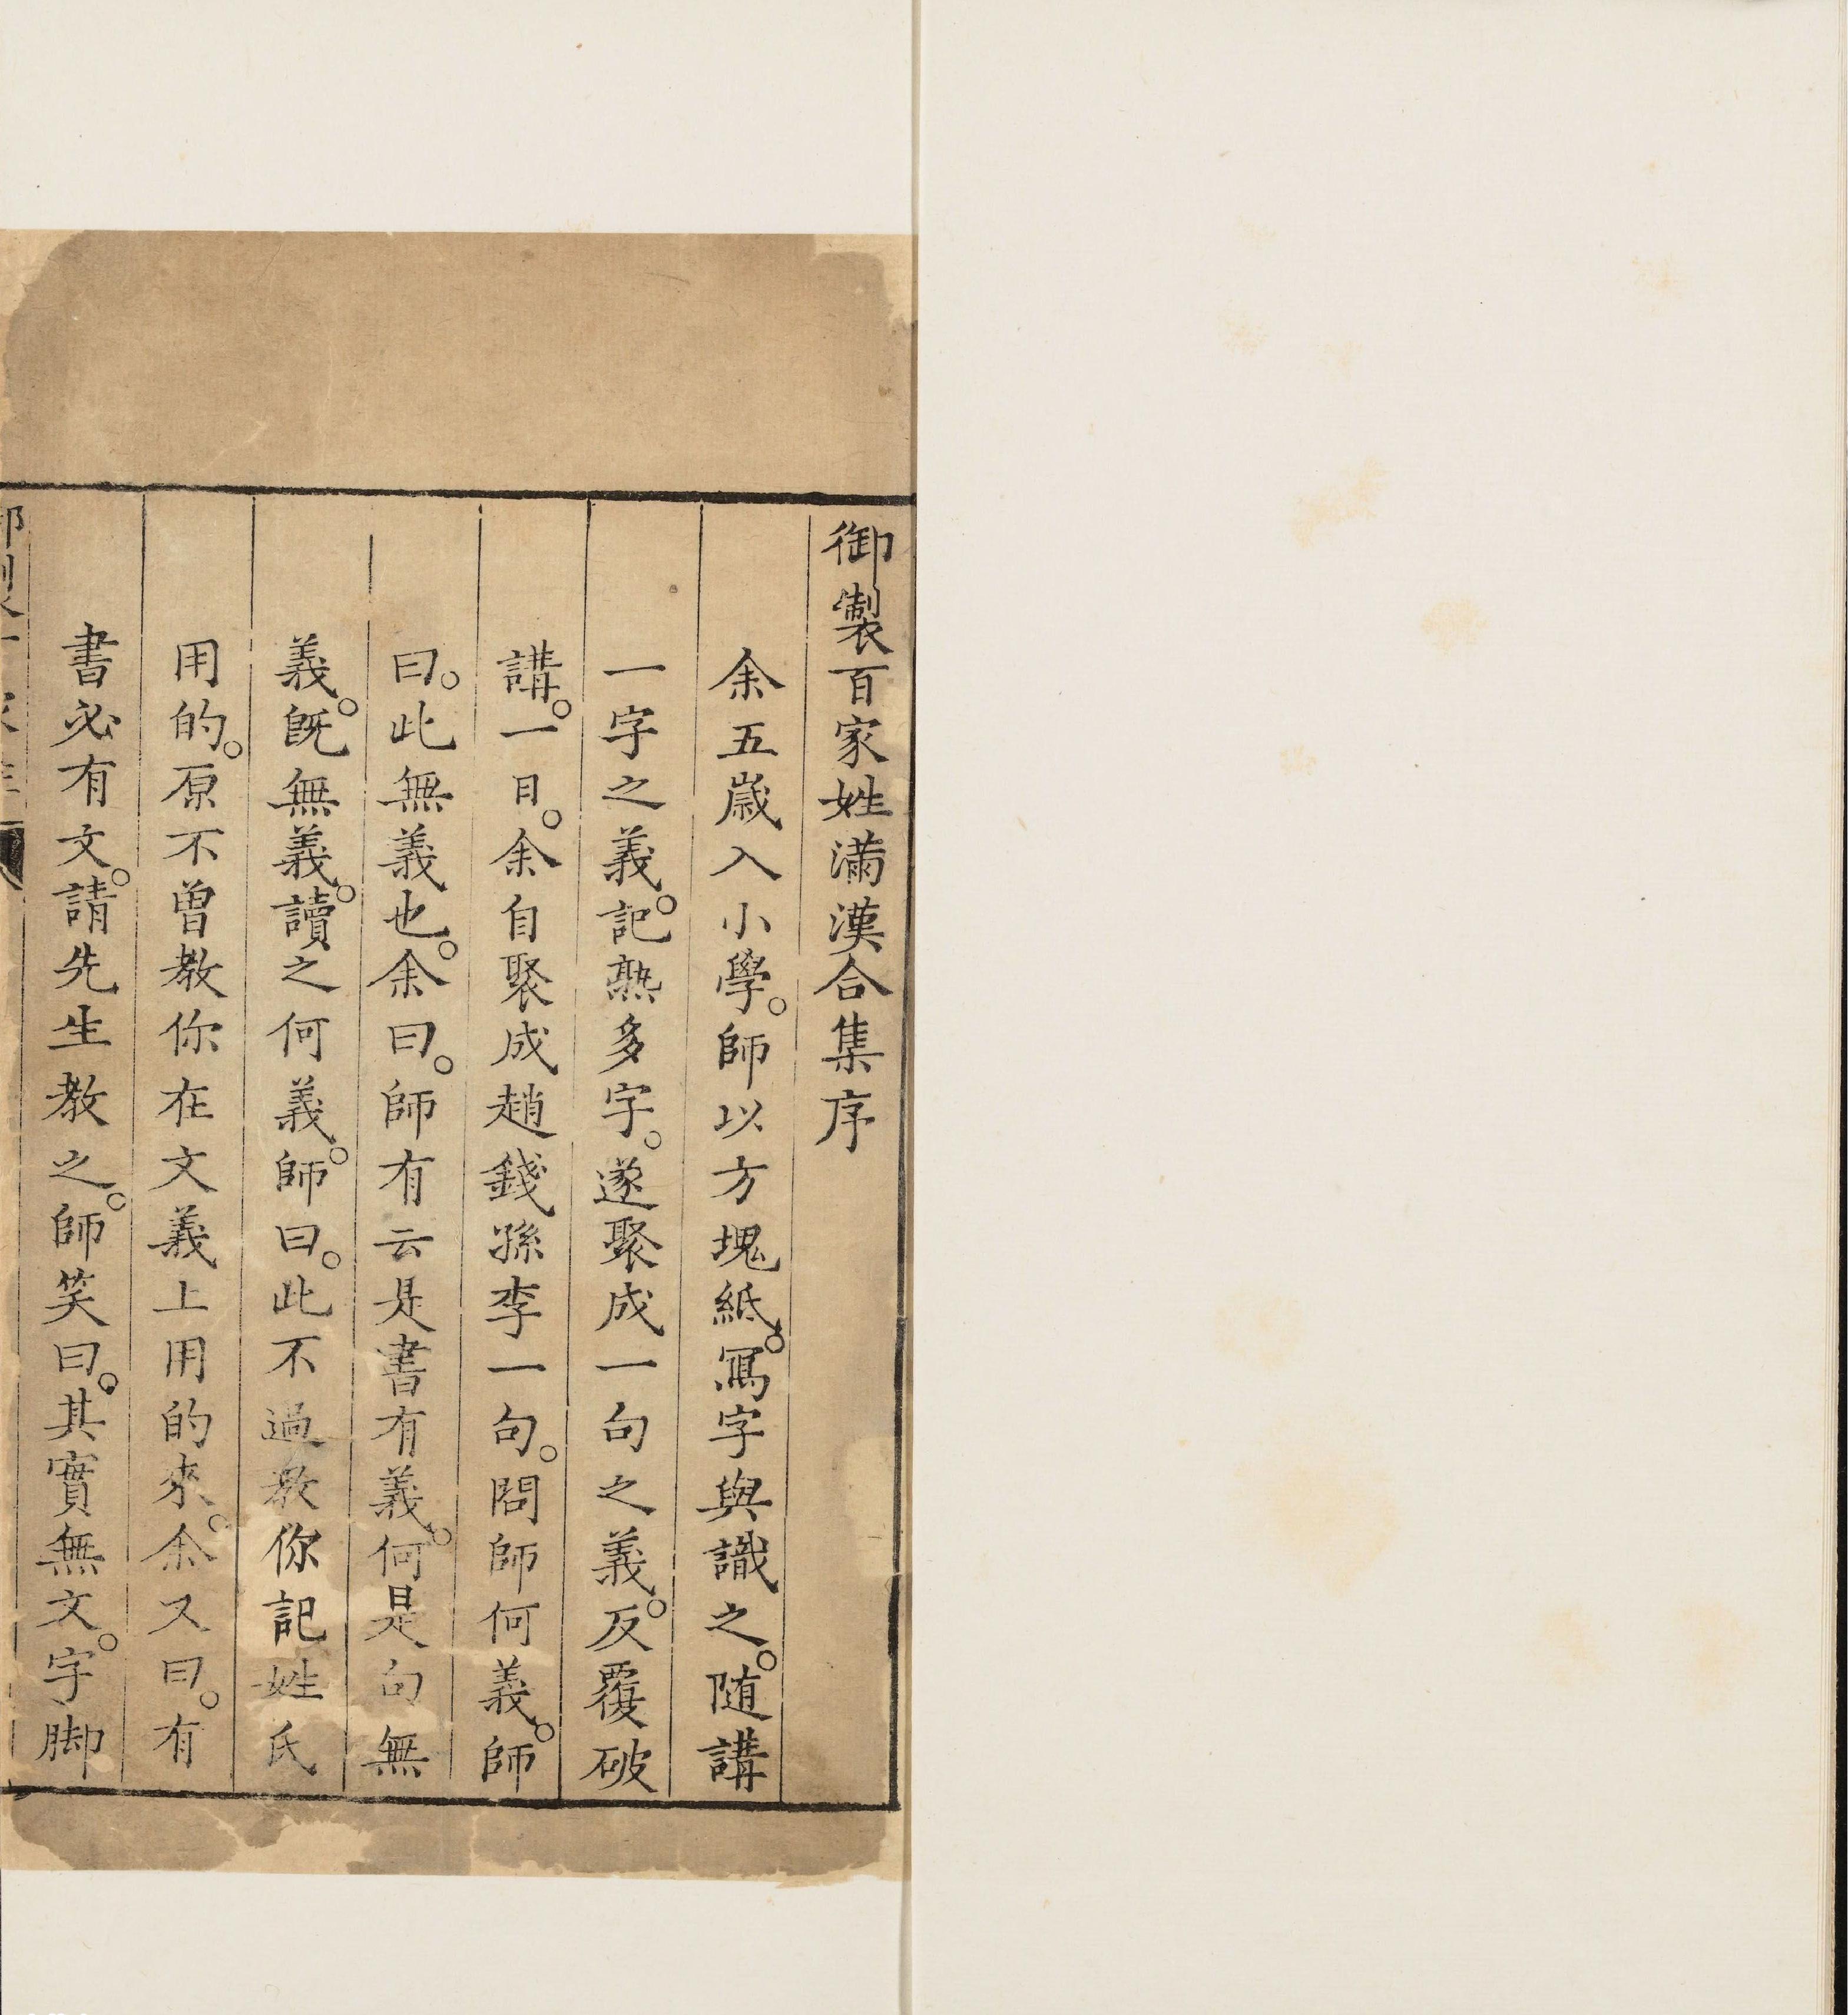 御製百家姓滿漢合集序
余五歲入小學。師以方塊紙。寫字與識之。随講
一字之義。記熟多字。遂聚成一句之義。反覆破
講。一日。余自聚成趙錢孫李一句。問師何義。師
曰。此無義也。余曰。師有云是書有義。何是句無
義。旣無義。讀之何義。師曰。此不過教你記姓氏
用的。原不曾教你在文義上用的來。余又曰。有
書必有文。請先生教之。師笑曰。其實無文。字脚